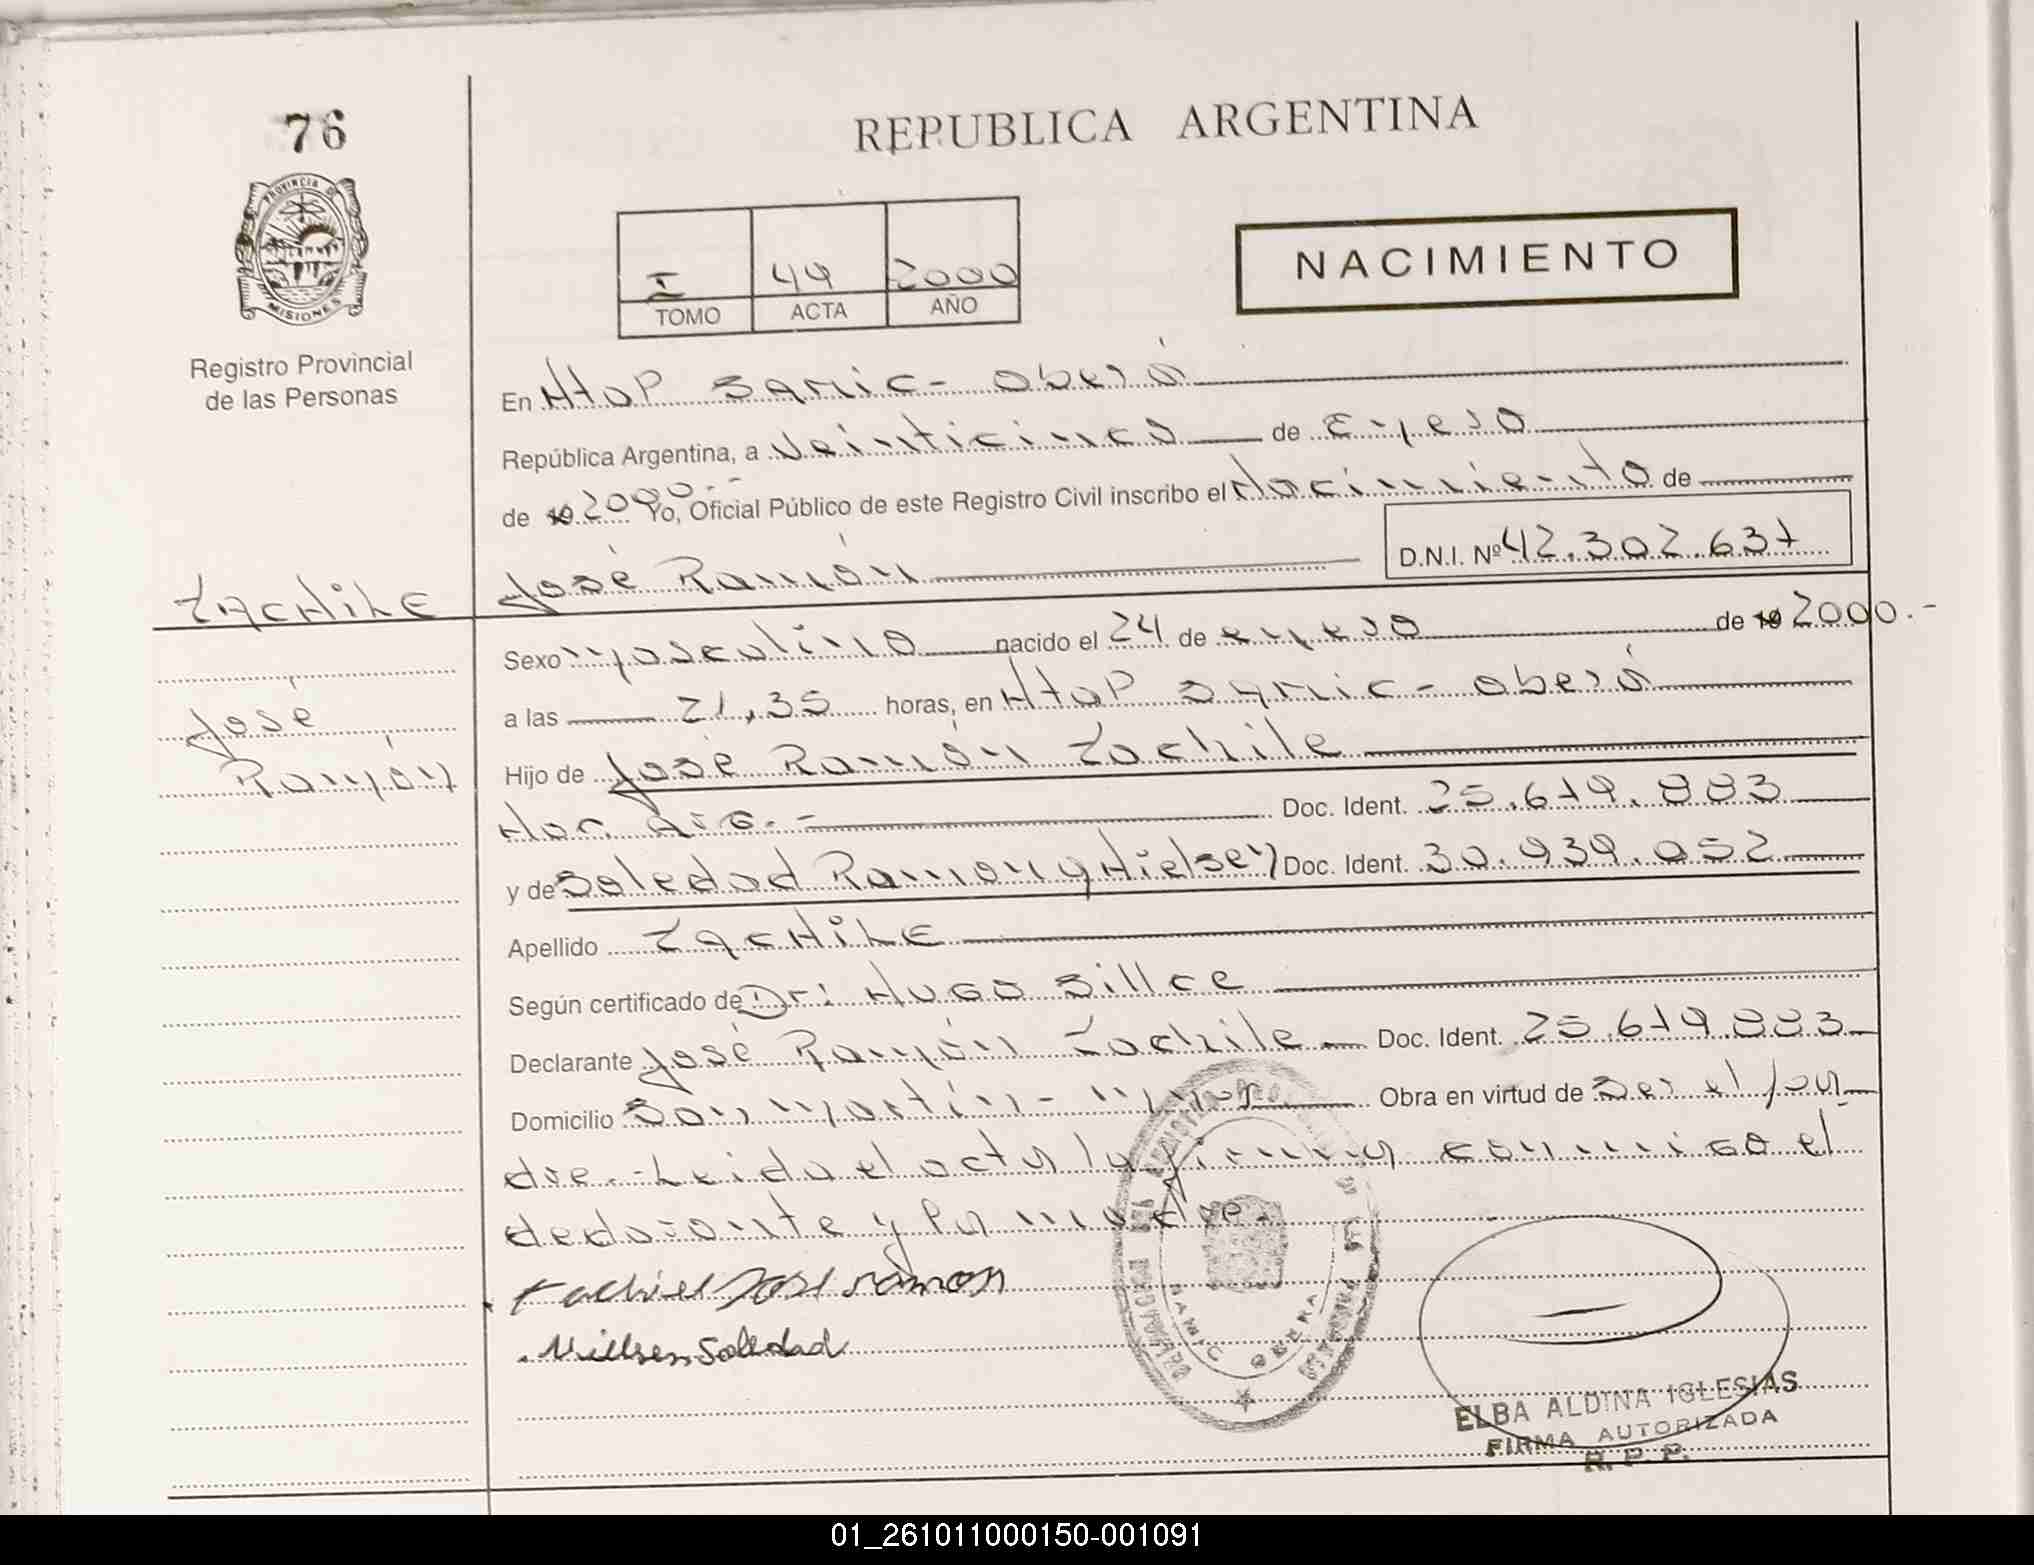 76
REPUBLICA ARGENTINA
PROVINCIA DE
MISIONES
Registro Provincial
de las Personas
I 49 2000
TOMO ACTA AÑO
NACIMIENTO
En Htop Samic - Oberá
República Argentina, a veinticinco de Enero
de 19 2000.- Yo, Oficial Público de este Registro Civil inscribo el Nacimiento de
José Ramón
D.N.I. Nº 42.302.637
Sexo Masculino nacido el 24 de enero de 19 2000.-
a las 21,35 horas, en Htop Samic - Oberá
José
Ramón
Hijo de José Ramón
Doc. Ident. 25.679.883
y de Soledad Ramona Doc. Ident. 30.939.052
Apellido
Según certificado de Dr: Hugo
Declarante José Ramón Doc. Ident. 25.679.883
Domicilio San Martín - Obra en virtud de ser el pa-
dre.- Leida el acta la firma conmigo el
declarante y la madre.
José ramon
Soledad
SAMIC OBERA
ELBA ALDINA IGLESIAS
FIRMA AUTORIZADA
R. P. P.
01_261011000150-001091